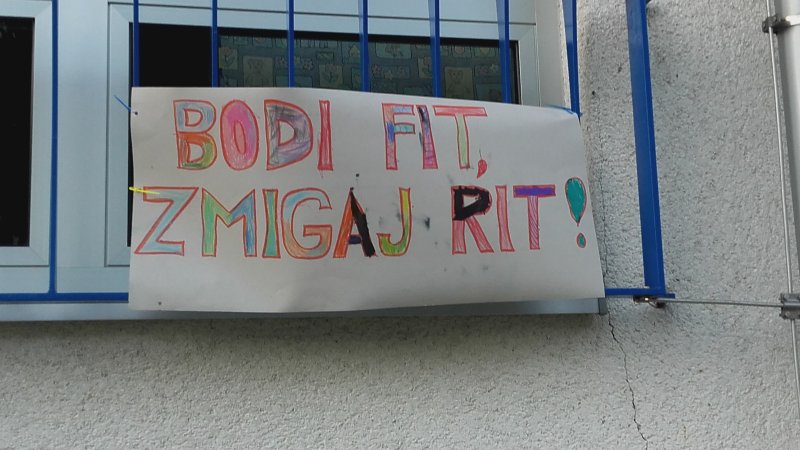 BODI FIT,
ZMIGAJ RIT!